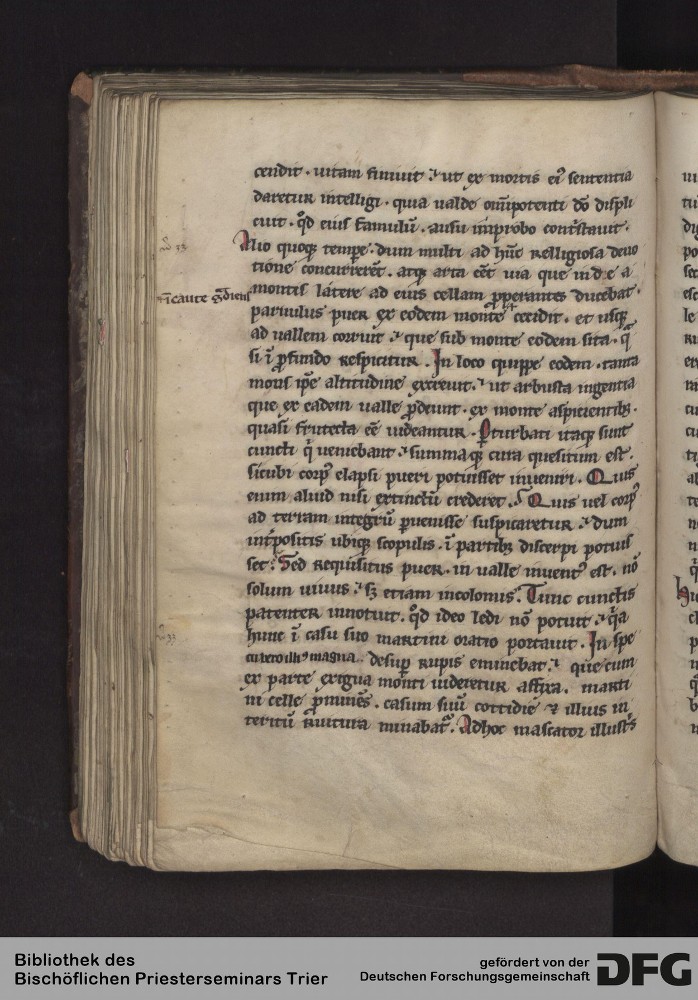 cendit. uitam finiuit. ut ex mortis ei᷒ sententia
daretur intelligi. quia ualde om̅ipotenti do̅ displi
cuit. qd̅ eius famulu̅. ausu improbo cont͛stauit.
Alio quoqꝫ tempe̅. dum multi ad hu̅c relligiosa deuo
tione concurrere̅t. atqꝫ arta ee̅t uia que in d e a
montis latere ad eius cellam ꝓperantes ducebat.
n̅ caute g̅diens
paruulus puer ex eodem monte cecidit. et usqꝫ
ad uallem corruit. que sub monte eodem sita. q̅
si i̅ ꝓfundo respicitur. In loco quippe eodem. tanta
mons ip̅e altitudine excreuit. ut arbusta ingentia
que ex eadem ualle ꝓdeunt. ex monte aspicientibꝫ.
quasi frutecta ee̅ uideantur. Ꝑturbati itaqꝫ sunt
cuncti q̇ ueniebant. summaqꝫ cura quesitum est.
sicubi corp᷒ elapsi pueri potuisset inueniri. Quis
enim aliud nisi extinctu̅ crederet. Quis uel corp᷒
ad terram integru̅ ꝑuenisse suspicaretur. dum
int͛positis ubiqꝫ scopulis. i̅ partibꝫ discerpi potuis
set. Sed requisitus puer. in ualle inuent᷒ est. no̅
solum uiuus. sꝫ etiam incolomis. Tunc cunctis
patenter innotuit. qd̅ ideo ledi no̅ potuit. q̇a
hunc i̅ casu suo martini oratio portauit. In spe
cu uero illi᷒ magna desuꝑ rupis eminebat. que cum
ex parte exigua monti uideretur affixa. marti
ni celle ꝓmine̅s. casum suu̅ cottidie ⁊ illius in
teritu̅ ruitura minabat᷑. Ad hoc mascator illust͛s
Bibliothek des
Bischöflichen Priesterseminars Trier
gefördert von der
Deutschen Forschungsgemeinschaft
DFG